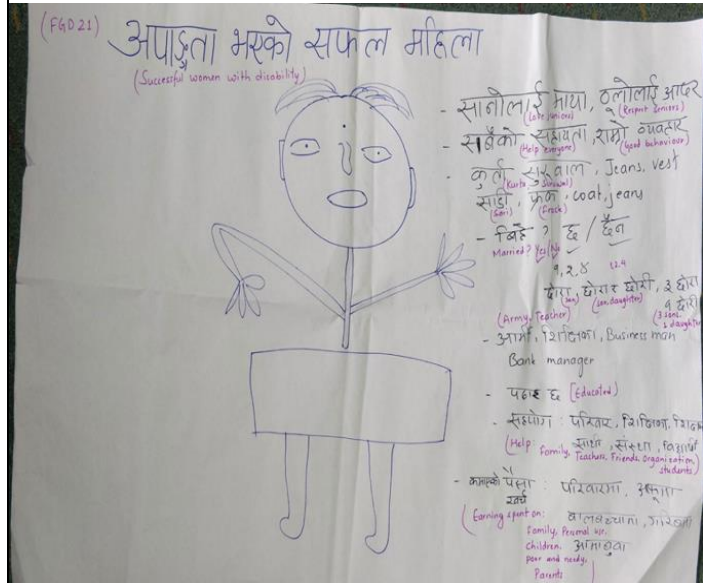 (FGD21)
अपाङ्गता भएको सफल महिला
(Successful women with disability)
- सानोलाई माया, ठूलोलाई आदर
(Love juniors) (Respect Seniors)
- सबैको सहायता, राम्रो व्यवहार
(Help everyone) (Good behaviour)
- कुर्ता सुरुवाल, Jeans, vest
(Kurta Suruwal)
साडी, फ्रक, coat, jeans
(Sari) (Frock)
- बिहे? छ / छैन
Married? Yes/No
१,२,४ 1,2,4
छोरा, छोरा र छोरी, ३ छोरा
(son) (son, daughter)
१ छोरी
(3 sons, 1 daughter)
(Army, Teacher)
- आर्मी, शिक्षिका, Business man
Bank manager
- पढाइ छ [Educated]
- सहयोग : परिवार, शिक्षिका,
साथी, संस्था, विद्यार्थी
(Help: Family, Teachers, Friends, Organization, students)
- कमाएको पैसा : परिवारमा,
खर्च
बालबच्चामा,
(Earning spent on:
Family, Personal use,
children, आमाबुवा
poor and needy,
Parents )